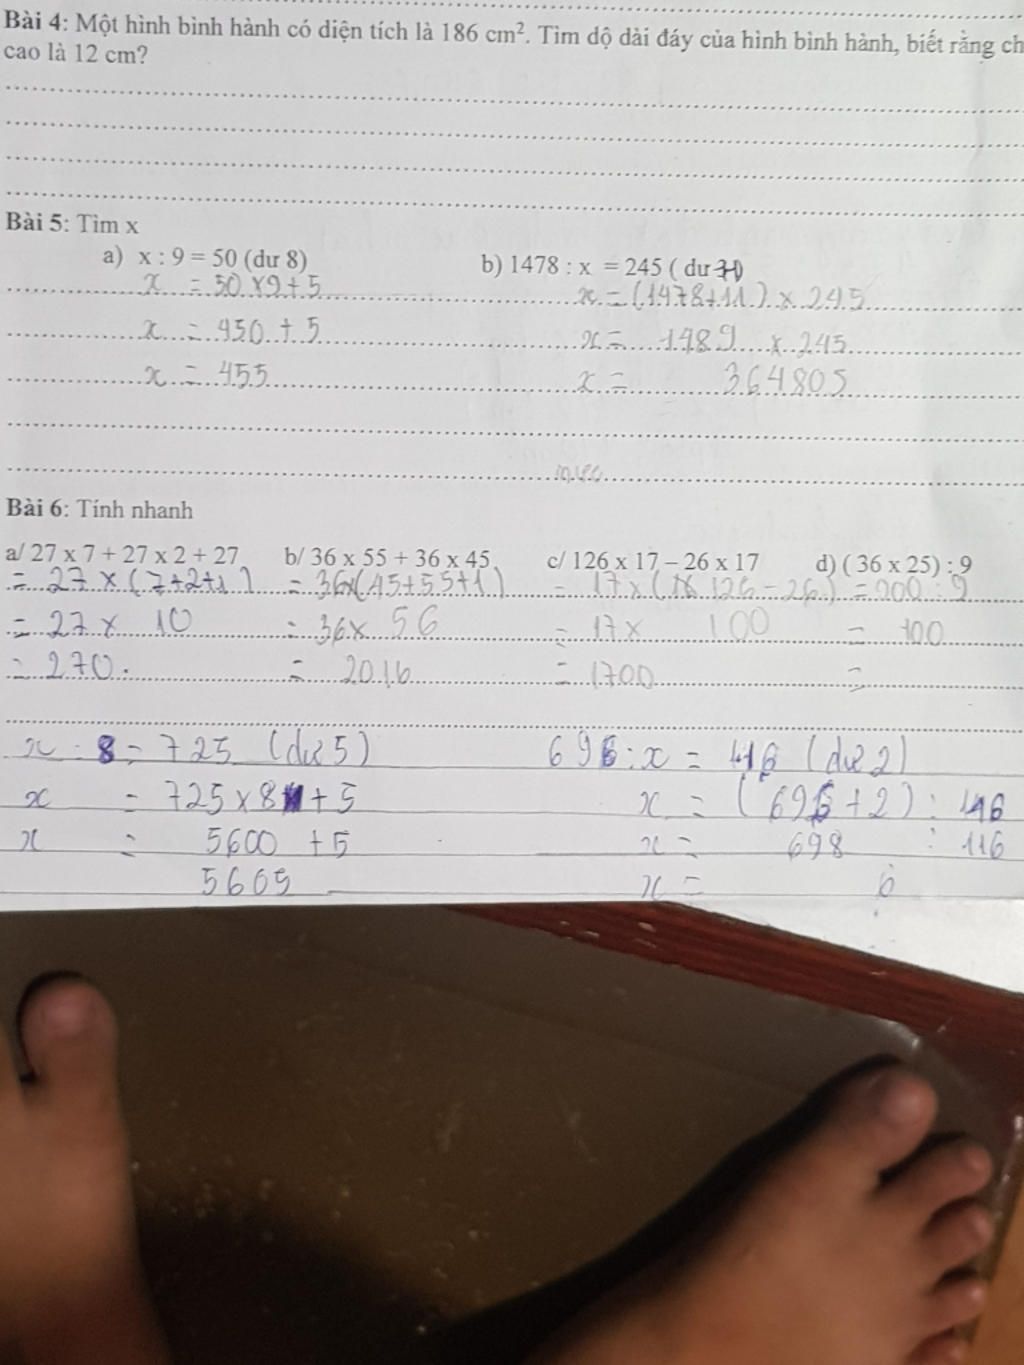 Bài 4: Một hình bình hành có diện tích là 186 cm². Tìm dộ dài đáy của hình bình hành, biết rằng ch
cao là 12 cm?
Bài 5: Tìm x
a) x : 9 = 50 (dư 8)
x = 50 x 9 + 5
x = 450 + 5
x = 455
b) 1478 : x = 245 ( dư
x = (1478+11) x 245
x = 1489 x 245
x = 364805
Bài 6: Tính nhanh
a/ 27 x 7 + 27 x 2 + 27
= 27 x (7+2+1)
= 27 x 10
= 270.
b/ 36 x 55 + 36 x 45
= 36x(45+55+1)
= 36x 56
= 2016
c/ 126 x 17 – 26 x 17
= 17x( 126 - 26)
= 17x 100
= 1700
d) ( 36 x 25) : 9
= 900 : 9
= 100
=
x : 8 = 725 (dư 5)
x = 725 x 8 + 5
x = 5600 + 5
5605
696 : x = 116 (dư 2)
x = (696+2) : 116
x = 698 : 116
x = 6